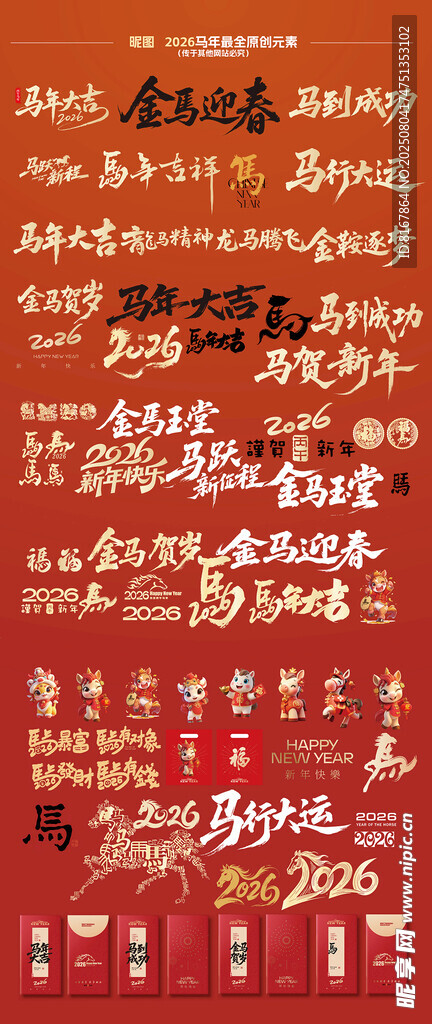 昵图 2026马年最全原创元素
(传于其他网站必究)
马年大吉
2026
金馬迎春
马到成功
马跃新程
馬年吉祥
馬
CHINESE
NEW
YEAR
马行大运
马年大吉
龍马精神
龙马腾飞
金鞍逐梦
金马贺岁
2026
HAPPY NEW YEAR
马年大吉
2026
馬年大吉
馬
马到成功
马贺新年
金馬玉堂
2026
新年快乐
马跃
新征程
2026
謹賀 新年
金马玉堂
馬
福 福
金马贺岁
金马迎春
2026
謹賀 新年
馬
2026 Happy New Year
2026
馬
2026
馬年大吉
馬上暴富
馬上有对象
馬上發財
馬上有錢
2026
福
HAPPY
NEW YEAR
新年快樂
馬
馬
2026
马行大运
2026
YEAR OF THE HORSE
2026
2026
2026
马年大吉
2026
马到成功
2026
HAPPY
NEW YEAR
金马贺岁
2026
馬
2026
ID:8167864 NO:20250804174751353102
昵享网 www.nipic.cn